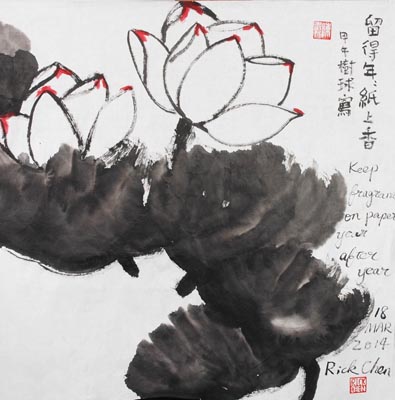 留得年〻紙上香
甲午樹球寫
Keep
fragrance
on paper
year
after
year
18
MAR
2014
Rick Chen